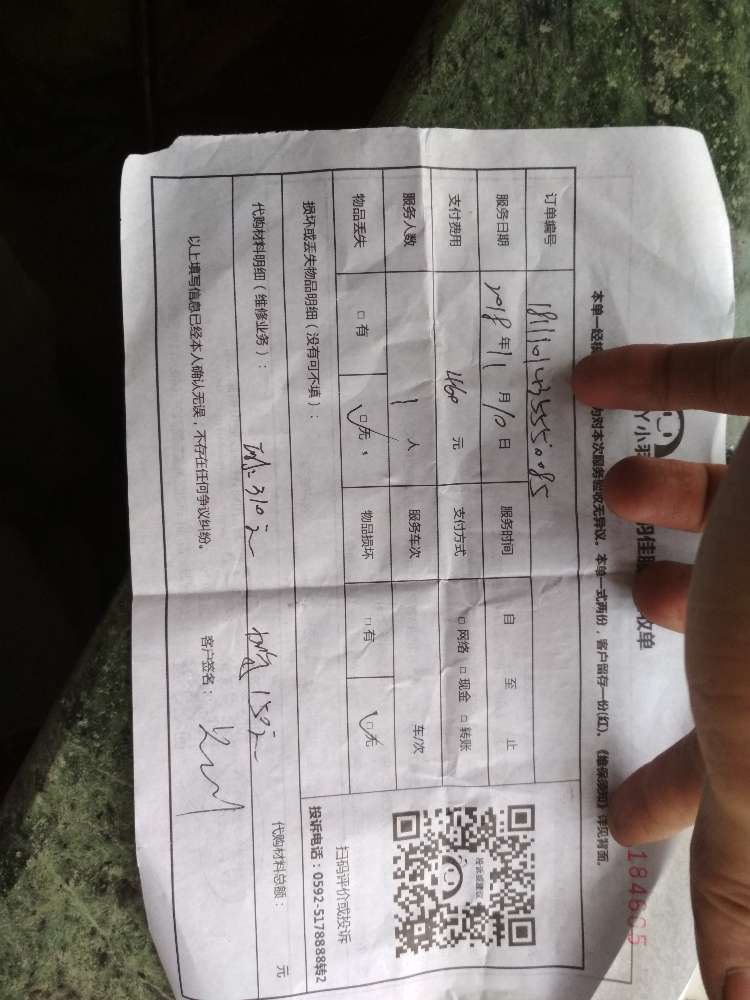 184665
本单一经 对本次服务验收无异议。本单一式两份，客户留存一份(红)。《维保须知》详见背面。
订单编号 18111014355 5085
服务日期 2018年11月10日 服务时间 自 至 止
支付费用 460 元 支付方式 □网络 □现金 □转账
服务人数 1 人 服务车次 车/次
物品丢失 □有 □无 物品损坏 □有 □无
损坏或丢失物品明细（没有可不填）：
扫码评价或投诉
投诉电话：0592-5178888转2
代购材料明细（维修业务）： 310元 150元 代购材料总额： 元
以上填写信息已经本人确认无误，不存在任何争议纠纷。
客户签名：